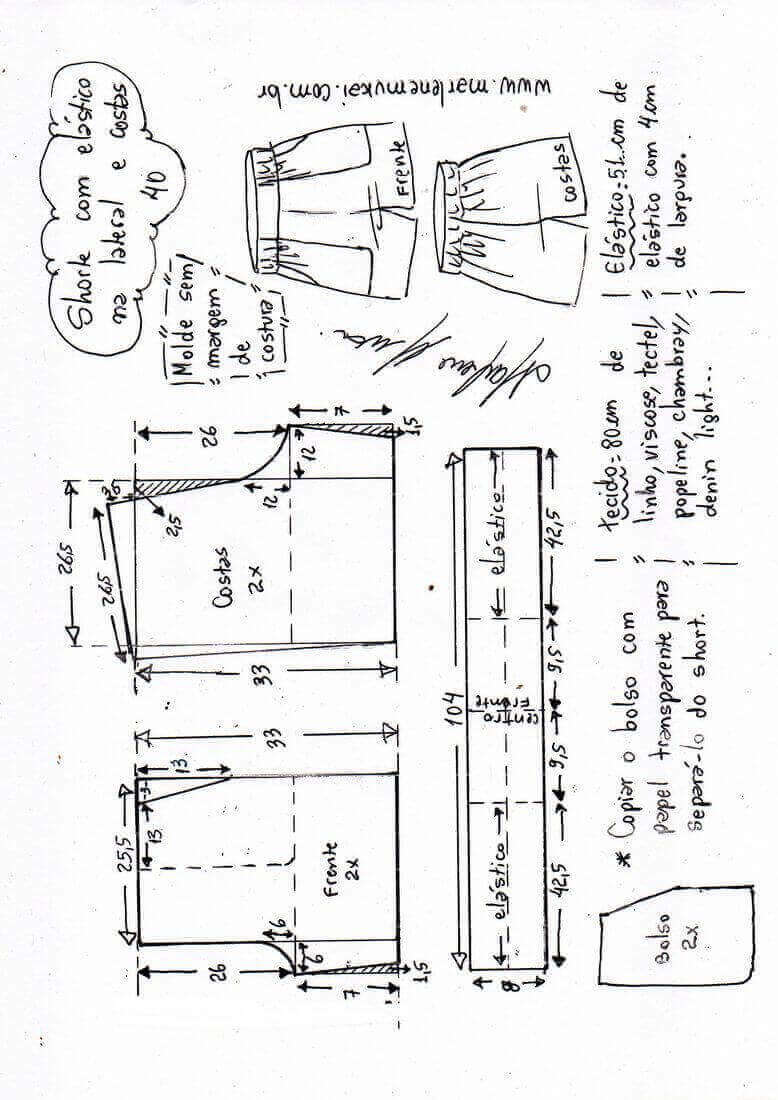 Shorte com elástico
na lateral e costas
40
www.marlenemukai.com.br
Molde sem
margem
de
costura
Frente
costas
Elástico=51cm de
elástico com 4cm
de largura.
tecido=80cm de
linho, viscose, tectel,
popeline, chambray,
denin light...
* Copiar o bolso com
papel transparente para
separá-lo do short.
26
7
1,5
12
12
2,5
26,5
26,5
Costas
2x
33
33
13
3
13
25,5
Frente
2x
6
6
26
7
1,5
104
elástico
centro
Frente
elástico
42,5
9,5
9,5
42,5
8
Bolso
2x